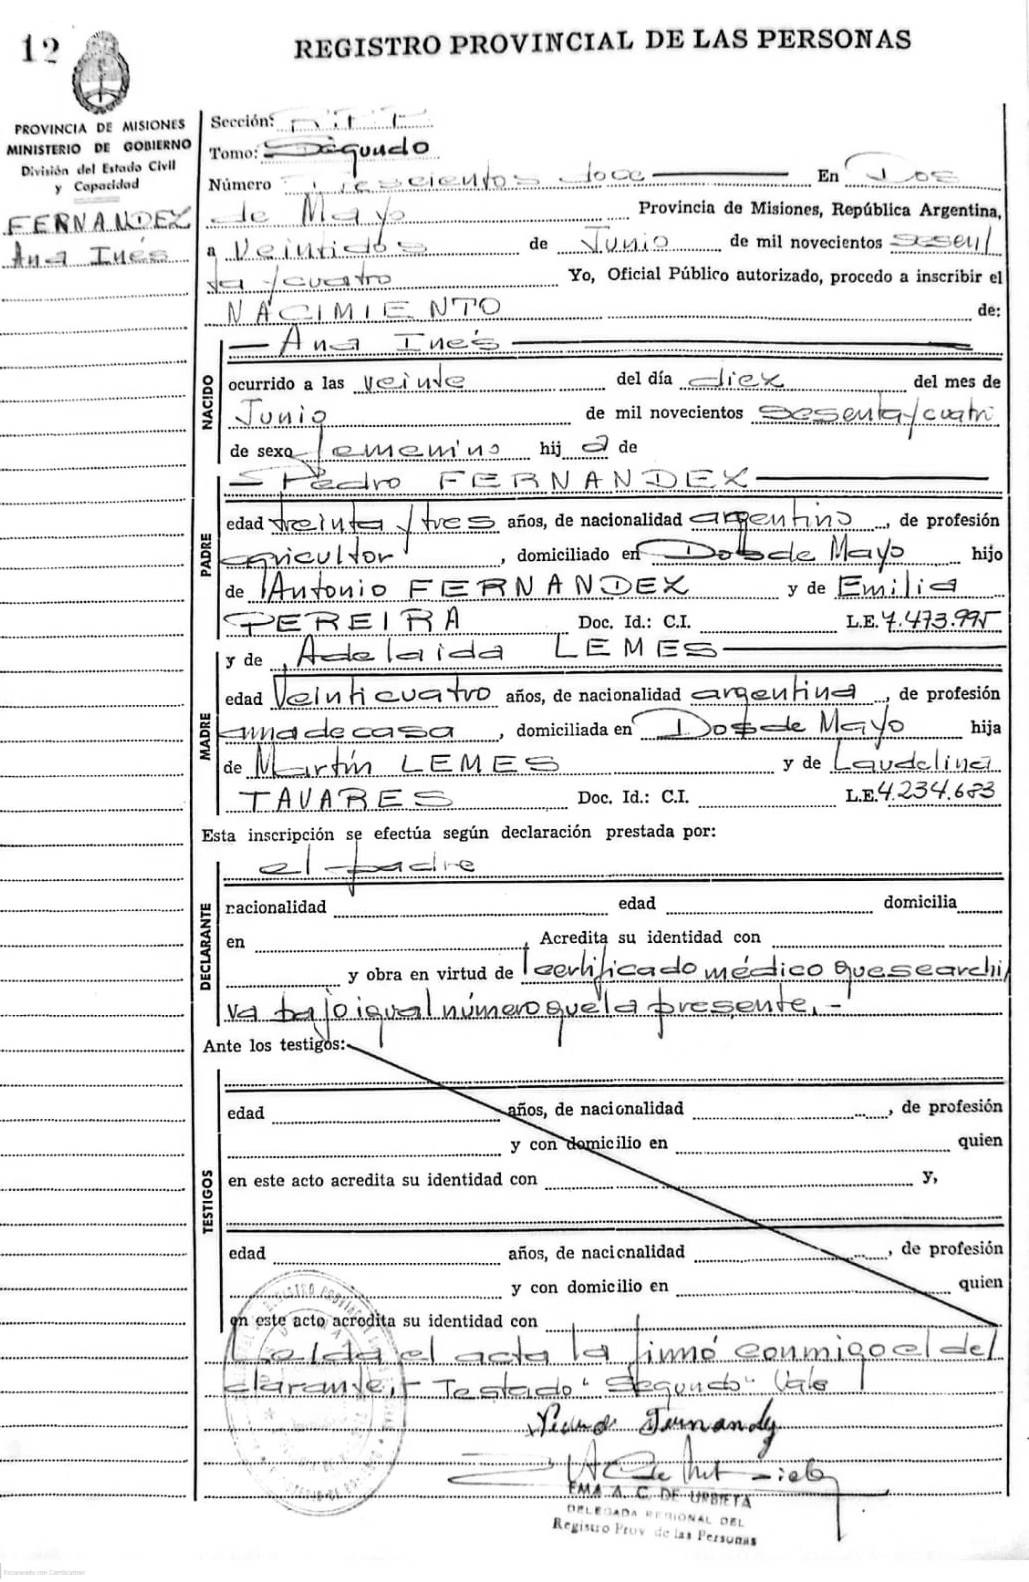 12
REGISTRO PROVINCIAL DE LAS PERSONAS
PROVINCIA DE MISIONES
MINISTERIO DE GOBIERNO
División del Estado Civil
y Capacidad
FERNANDEZ
Ana Inés
Sección:
Tomo: Segundo
Número Trescientos doce En Dos
de Mayo Provincia de Misiones, República Argentina,
a Veintidos de Junio de mil novecientos sesen/
ta y cuatro Yo, Oficial Público autorizado, procedo a inscribir el
NACIMIENTO de:
— Ana Inés —
NACIDO
ocurrido a las veinte del día diez del mes de
Junio de mil novecientos sesenta y cuatr
de sexo femenino hij a de
— Pedro FERNANDEZ —
PADRE
edad treinta y tres años, de nacionalidad argentino, de profesión
agricultor, domiciliado en Dos de Mayo hijo
de Antonio FERNANDEZ y de Emilia
PEREIRA Doc. Id.: C.I. L.E. 7.473.995
y de Adelaida LEMES —
MADRE
edad Veinticuatro años, de nacionalidad argentina, de profesión
ama de casa, domiciliada en Dos de Mayo hija
de Martín LEMES y de Laudelina
TAVARES Doc. Id.: C.I. L.E. 4.234.683
Esta inscripción se efectúa según declaración prestada por:
el padre
DECLARANTE
nacionalidad edad domicilia
en , Acredita su identidad con
y obra en virtud de certificado médico que se archi/
va bajo igual número que la presente.-
Ante los testigos:
TESTIGOS
edad años, de nacionalidad , de profesión
y con domicilio en quien
en este acto acredita su identidad con y,
edad años, de nacionalidad , de profesión
y con domicilio en quien
en este acto acredita su identidad con
Leída el acta la firmó conmigo el de/
clarante.- Testado "Segundo" Vale
Fernandez
EMA A. C. DE URBIETA
DELEGADA REGIONAL DEL
Registro Prov. de las Personas
Escaneado con CamScanner